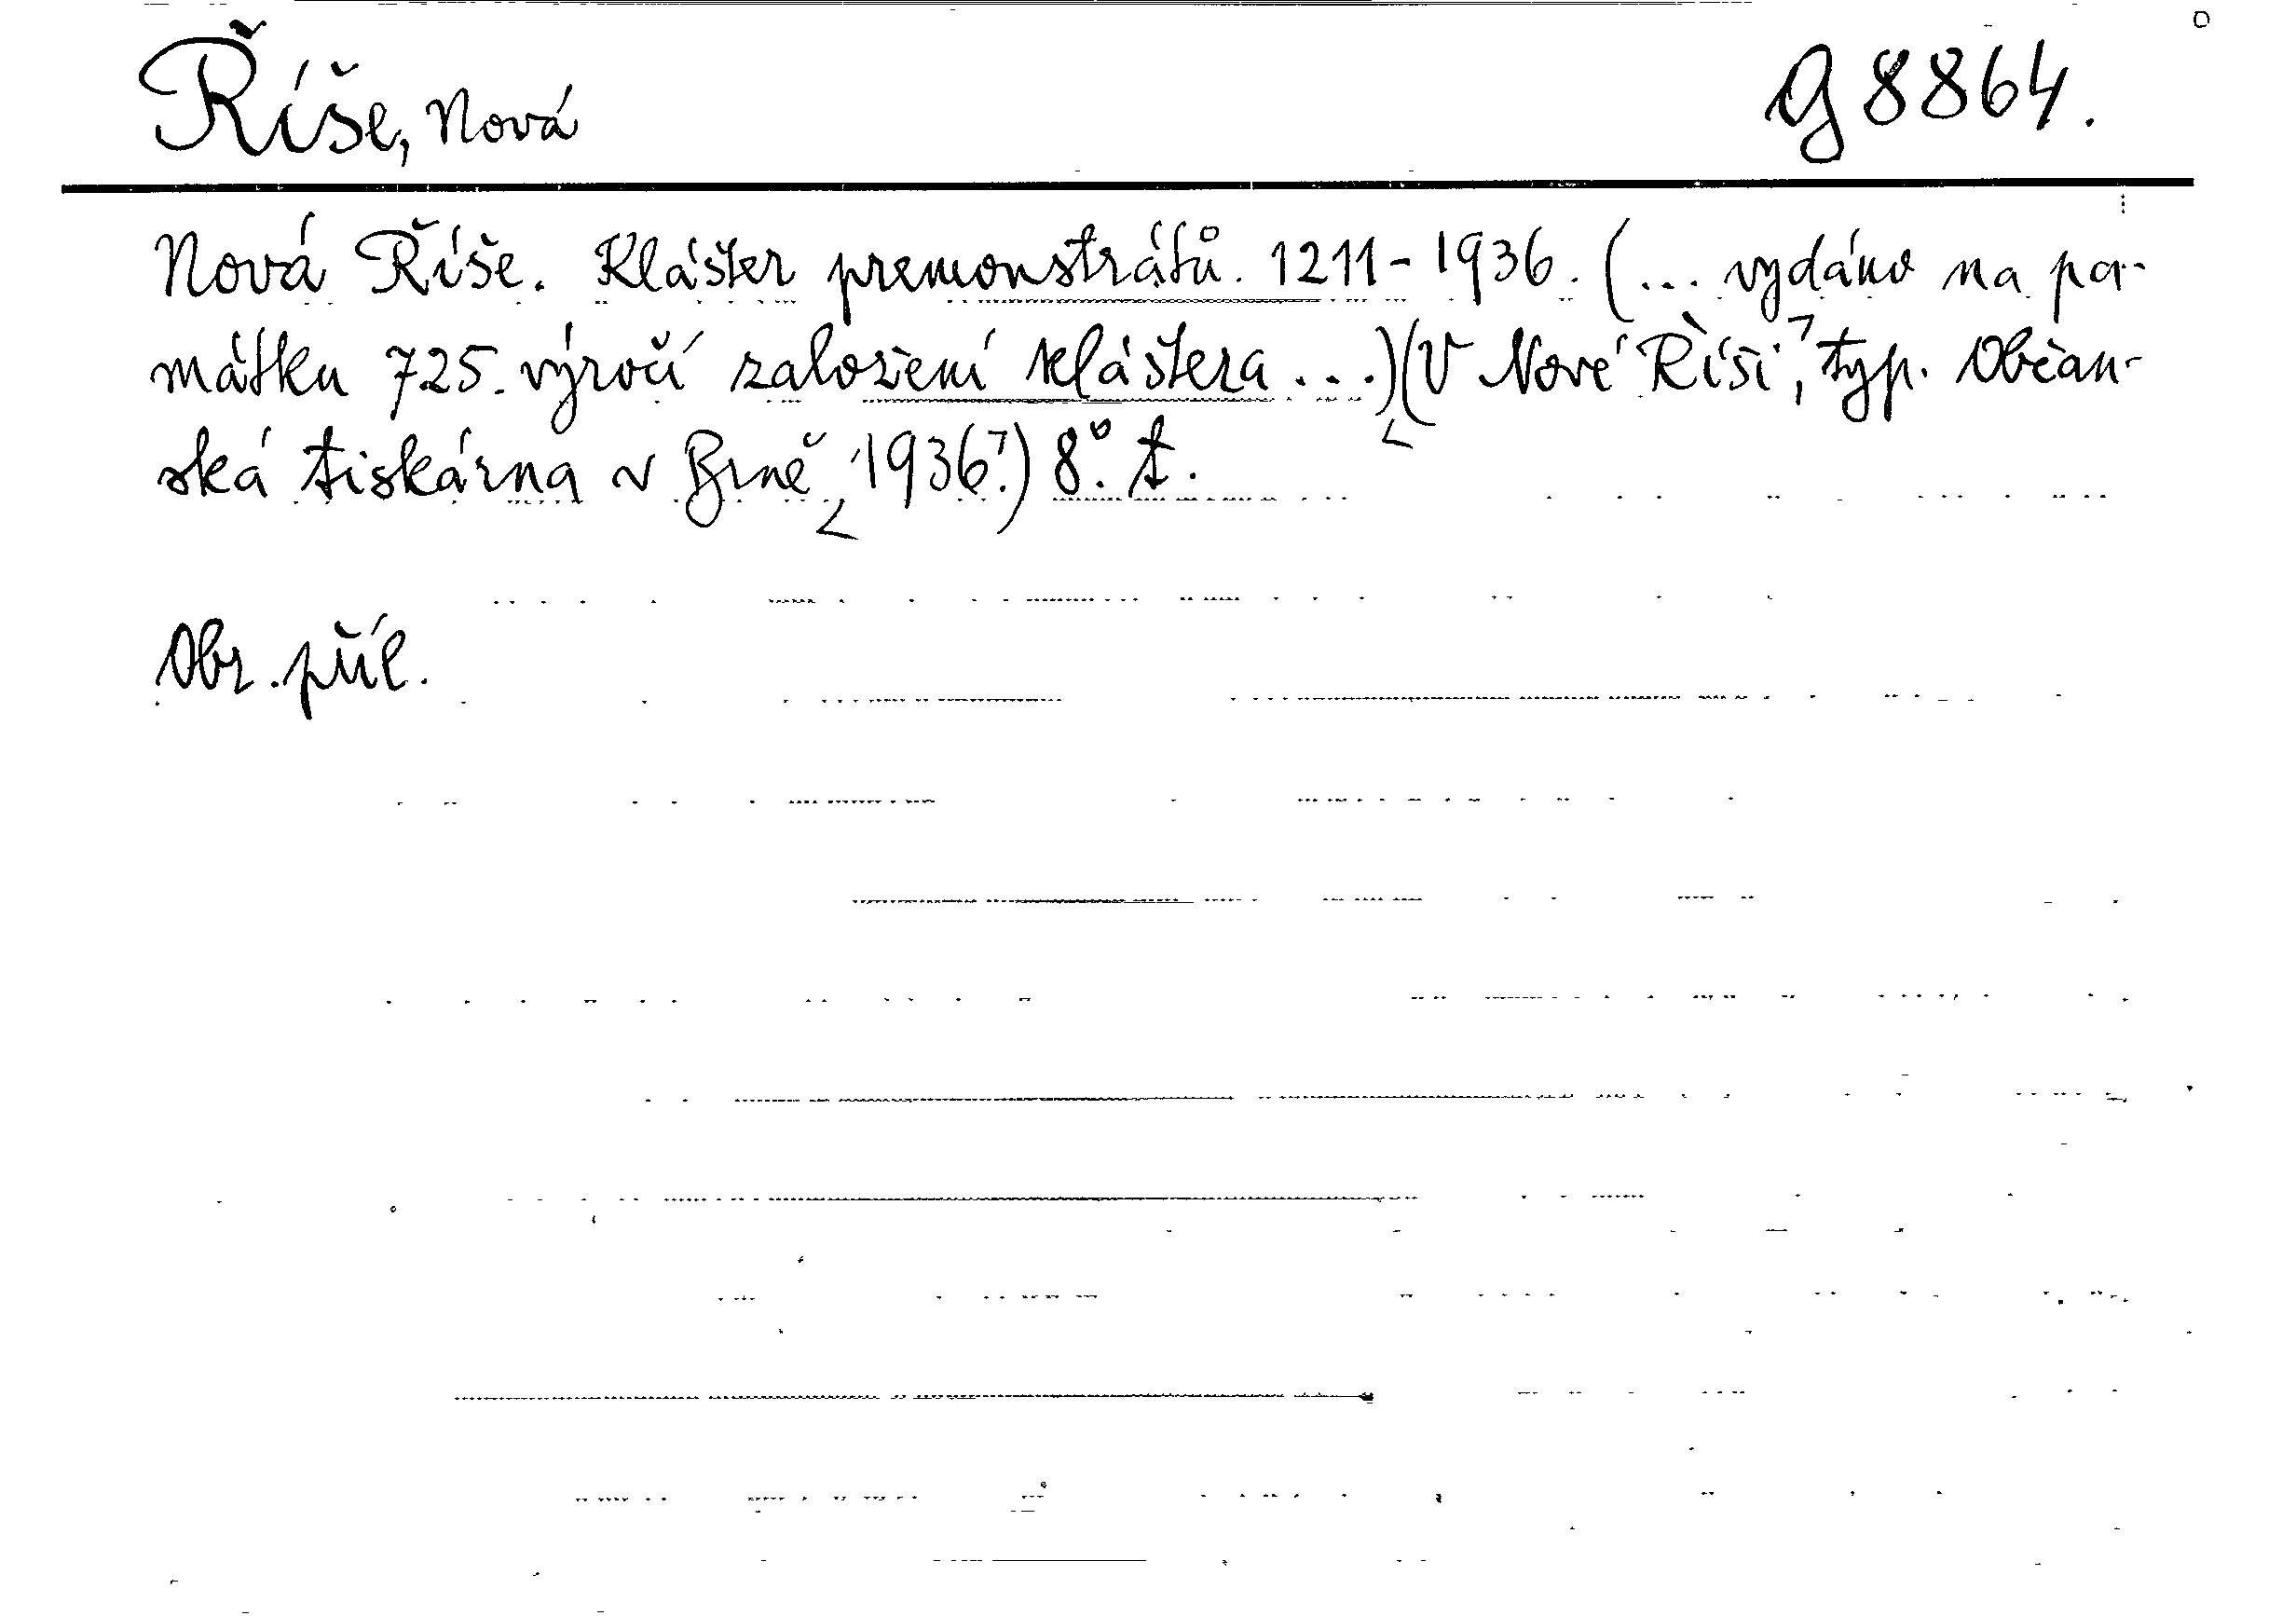 Říše, Nová
g 8864.
Nová Říše. Klášter premonstrátů. 1211-1936. (... vydáno na pa-
mátku 725. výročí založení kláštera...) (V Nové Říši, typ. Občan-
ská tiskárna v Brně 1936.) 8°. t.
Obr. příl.